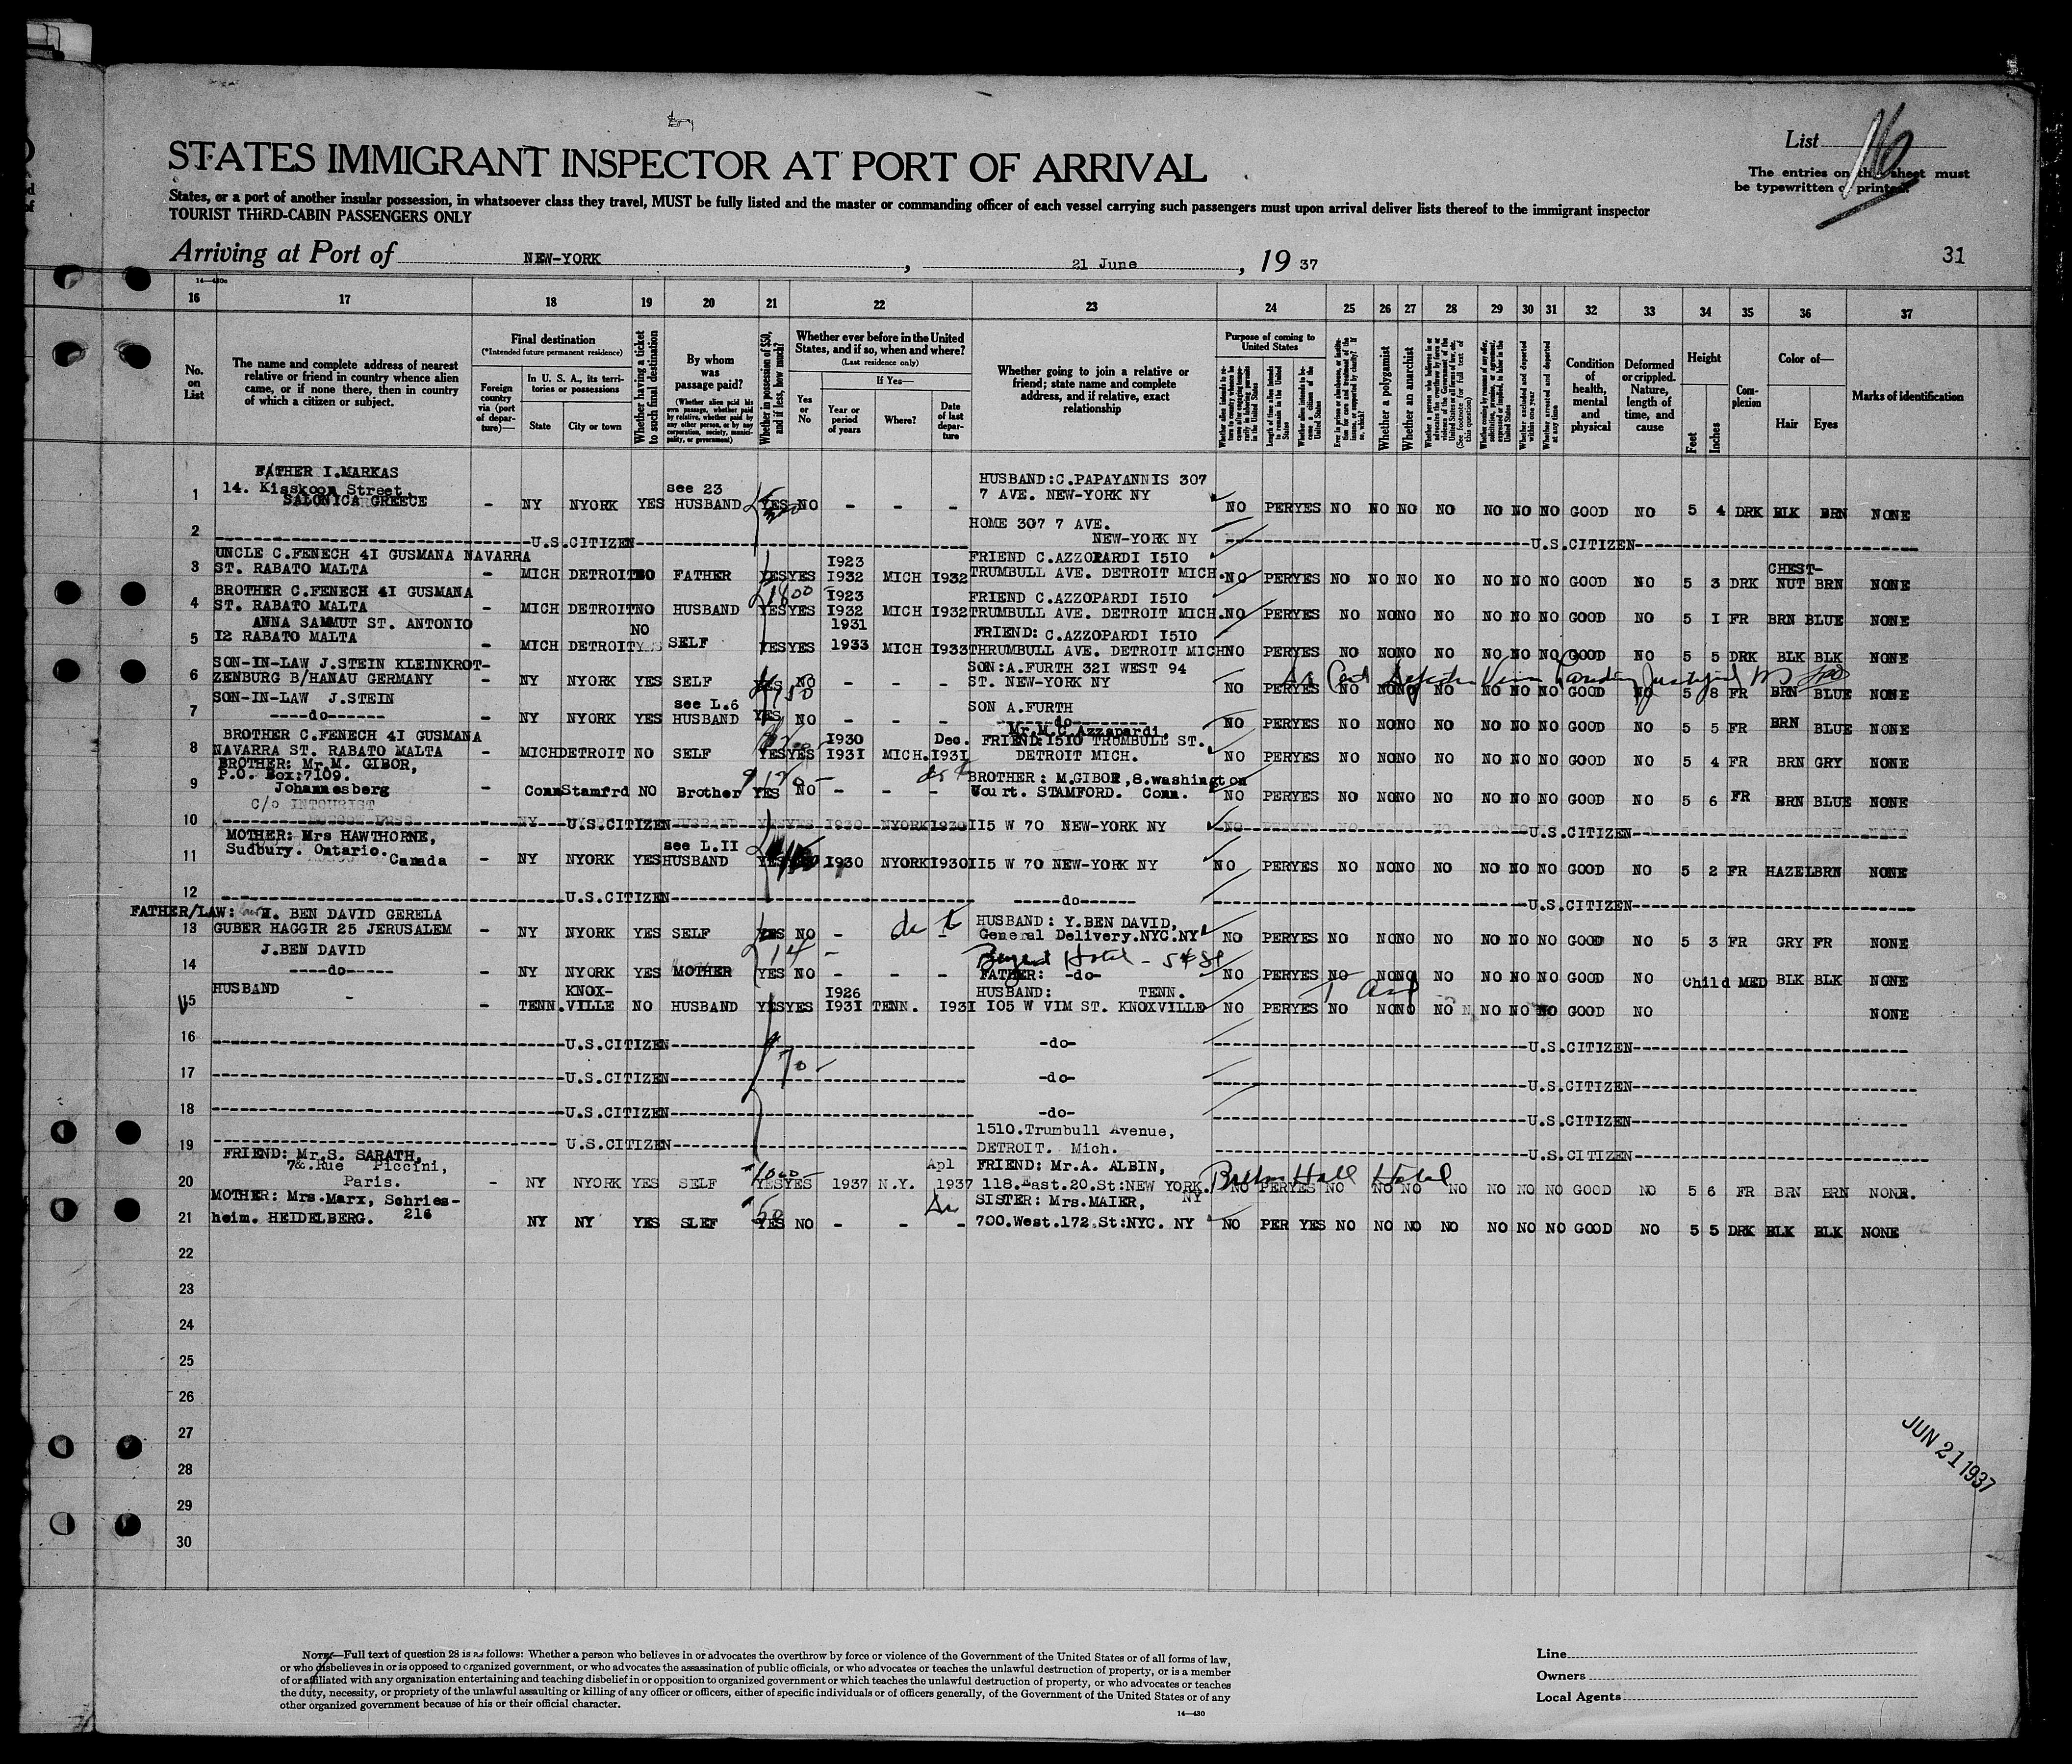 STATES IMMIGRANT INSPECTOR AT PORT OF ARRIVAL
List 16
The entries on this sheet must
be typewritten or printed
States, or a port of another insular possession, in whatsoever class they travel, MUST be fully listed and the master or commanding officer of each vessel carrying such passengers must upon arrival deliver lists thereof to the immigrant inspector
TOURIST THIRD-CABIN PASSENGERS ONLY
Arriving at Port of NEW-YORK, 21 June, 19 37
31
16 17 18 19 20 21 22 23 24 25 26 27 28 29 30 31 32 33 34 35 36 37
No. on List
The name and complete address of nearest
relative or friend in country whence alien
came, or if none there, then in country
of which a citizen or subject.
Final destination
(*Intended future permanent residence)
Foreign country via (port of departure)—
In U. S. A., its territories or possessions
State
City or town
Whether having a ticket to such final destination
By whom was passage paid?
(Whether alien paid his own passage, whether paid by relative, whether paid by any other person, or by any corporation, society, municipality, or government)
Whether in possession of $50, and if less, how much?
Whether ever before in the United
States, and if so, when and where?
(Last residence only)
Yes or No
If Yes—
Year or period of years
Where?
Date of last departure
Whether going to join a relative or
friend; state name and complete
address, and if relative, exact
relationship
Purpose of coming to United States
Length of time alien intends to remain in the United States
Whether alien intends to become a citizen of the United States
Whether a polygamist
Whether an anarchist
Whether excluded and deported within one year
Whether arrested and deported at any time
Condition of health, mental and physical
Deformed or crippled. Nature, length of time, and cause
Height
Feet
Inches
Complexion
Color of—
Hair
Eyes
Marks of identification
FATHER I.MARKAS
14. Kisskoon Street,
SALONICA GREECE
1 - NY NYORK YES see 23 HUSBAND YES NO - - - HUSBAND:C.PAPAYANNIS 307
7 AVE. NEW-YORK NY NO PER YES NO NO NO NO NO NO NO GOOD NO 5 4 DRK BLK BRN NONE
2 U.S.CITIZEN HOME 307 7 AVE.
NEW-YORK NY U.S.CITIZEN
UNCLE C.FENECH 4I GUSMANA NAVARRA
3 ST. RABATO MALTA - MICH DETROIT NO FATHER YES YES I923 I932 MICH I932 FRIEND C.AZZOPARDI I5IO
TRUMBULL AVE. DETROIT MICH. NO PER YES NO NO NO NO NO NO NO GOOD NO 5 3 DRK CHEST-NUT BRN NONE
BROTHER C.FENECH 4I GUSMANA
4 ST. RABATO MALTA - MICH DETROIT NO HUSBAND YES YES I923 I932 MICH I932 FRIEND C.AZZOPARDI I5IO
TRUMBULL AVE. DETROIT MICH. NO PER YES NO NO NO NO NO NO NO GOOD NO 5 I FR BRN BLUE NONE
ANNA SAMMUT ST. ANTONIO
5 I2 RABATO MALTA - MICH DETROIT NO SELF YES YES 1931 1933 MICH I933 FRIEND: C.AZZOPARDI I5IO
THRUMBULL AVE. DETROIT MICH NO PER YES NO NO NO NO NO NO NO GOOD NO 5 5 DRK BLK BLK NONE
SON-IN-LAW J.STEIN KLEINKROT-
6 ZENBURG B/HANAU GERMANY - NY NYORK YES SELF YES NO - - - SON:A.FURTH 32I WEST 94
ST. NEW-YORK NY NO PER YES NO NO NO NO NO NO NO GOOD NO 5 8 FR BRN BLUE NONE
SON-IN-LAW J.STEIN
7 ----do------ - NY NYORK YES see L.6 HUSBAND YES NO - - - SON A.FURTH
-do- NO PER YES NO NO NO NO NO NO NO GOOD NO 5 5 FR BRN BLUE NONE
BROTHER C.FENECH 4I GUSMANA
8 NAVARRA ST. RABATO MALTA - MICH DETROIT NO SELF YES YES I930 I931 MICH. Dec. I931 Mr.M.C.Azzapardi.
FRIEND:1510 TRUMBULL ST.
DETROIT MICH. NO PER YES NO NO NO NO NO NO NO GOOD NO 5 4 FR BRN GRY NONE
BROTHER: Mr.M. GIBOR,
P.O. Box:7109.
9 Johannesberg - Conn Stamfrd NO Brother YES NO - - - BROTHER: M.GIBOR,8.washington
Court. STAMFORD. Conn. NO PER YES NO NO NO NO NO NO NO GOOD NO 5 6 FR BRN BLUE NONE
C/o INTOURIST
10 U.S.CITIZEN II5 W 70 NEW-YORK NY U.S.CITIZEN
MOTHER: Mrs HAWTHORNE,
Sudbury. Ontario.
11 Canada - NY NYORK YES see L.II HUSBAND YES I930 NYORK I930 II5 W 70 NEW-YORK NY NO PER YES NO NO NO NO NO NO NO GOOD NO 5 2 FR HAZEL BRN NONE
12 U.S.CITIZEN -----do------ U.S.CITIZEN
FATHER/LAW: BEN DAVID GERELA
13 GUBER HAGGIR 25 JERUSALEM - NY NYORK YES SELF YES NO - - HUSBAND: Y.BEN DAVID,
General Delivery.NYC.NY NO PER YES NO NO NO NO NO NO NO GOOD NO 5 3 FR GRY FR NONE
J.BEN DAVID
14 ----do----- - NY NYORK YES MOTHER YES NO - - - Hotel
FATHER: -do- NO PER YES NO NO NO NO NO NO NO GOOD NO Child MED BLK BLK NONE
HUSBAND
15 - - TENN. KNOX-VILLE NO HUSBAND YES YES I926 I93I TENN. I93I HUSBAND: TENN.
I05 W VIM ST. KNOXVILLE NO PER YES NO NO NO NO NO NO NO GOOD NO NONE
16 U.S.CITIZEN -do- U.S.CITIZEN
17 U.S.CITIZEN 70- -do- U.S.CITIZEN
18 U.S.CITIZEN -do- U.S.CITIZEN
19 U.S.CITIZEN 1510.Trumbull Avenue,
DETROIT. Mich. U.S.CITIZEN
FRIEND: Mr.S. SARATH,
7&.Rue Piccini,
20 Paris. - NY NYORK YES SELF YES YES 1937 N.Y. Apl 1937 FRIEND: Mr.A. ALBIN,
118.East.20.St:NEW YORK. NY Hall Hotel NO PER YES NO NO NO NO NO NO NO GOOD NO 5 6 FR BRN BRN NONE.
MOTHER: Mrs.Marx, Schries-
21 heim. HEIDELBERG. 216 NY NY YES SLEF 50 YES NO - - - SISTER: Mrs.MAIER,
700.West.172.St:NYC. NY NO PER YES NO NO NO NO NO NO NO GOOD NO 5 5 DRK BLK BLK NONE
22
23
24
25
26
27
28
29
30
JUN 21 1937
NOTE.—Full text of question 28 is as follows: Whether a person who believes in or advocates the overthrow by force or violence of the Government of the United States or of all forms of law,
or who disbelieves in or is opposed to organized government, or who advocates the assassination of public officials, or who advocates or teaches the unlawful destruction of property, or is a member
of or affiliated with any organization entertaining and teaching disbelief in or opposition to organized government or which teaches the unlawful destruction of property, or who advocates or teaches
the duty, necessity, or propriety of the unlawful assaulting or killing of any officer or officers, either of specific individuals or of officers generally, of the Government of the United States or of any
other organized government because of his or their official character.
14—430
Line
Owners
Local Agents